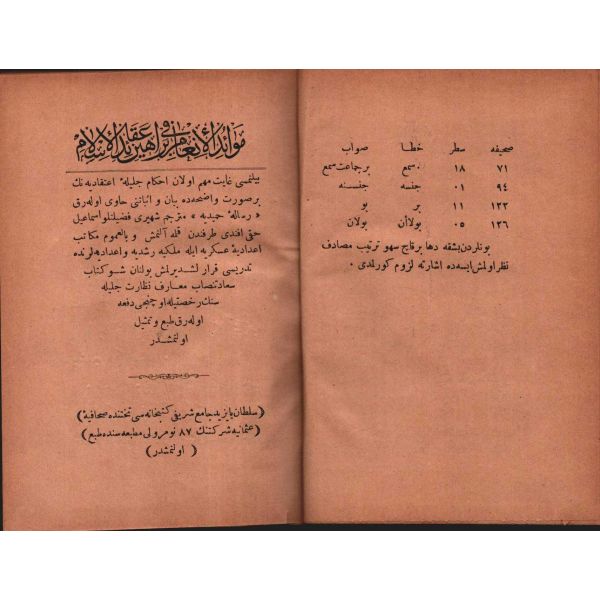 صحيفه سطر خطا صواب
٧١ ١٨ سمع برجماعت سمع
٩٤ ٠١ جنسه جنسنه
١٢٣ ١١ بر بو
١٢٦ ٠٥ بولاأن بولان
بونلردن بشقه دها برقاچ سهو ترتيب مصادف
نظر اولمش ايسه ده اشارته لزوم كورلمدى ٠
موائد الأنعام فى براهين عقائد الإسلام
بيلنمسى غايت مهم اولان احكام جليلهٔ اعتقاديه نك
برصورت واضحه ده بيان و اثباتنى حاوى اوله رق
« رسالهٔ حميديه » مترجم شهيرى فضيلتلو اسماعيل
حقى افندى طرفندن قلمه آلنمش و بالعموم مكاتب
اعداديهٔ عسكريه ايله ملكيه رشديه و اعداديه لرنده
تدريسى قرار لشديرلمش بولنان شو كتاب
سعادتنصاب معارف نظارت جليله
سنك رخصتيله اوچنجى دفعه
اوله رق طبع و تمثيل
اولنمشدر
(سلطان بايزيد جامع شريفى كتبخانه سى تحتنده صحافيهٔ)
(عثمانيه شركتنك ٨٧ نومرولى مطبعه سنده طبع)
(اولنمشدر)